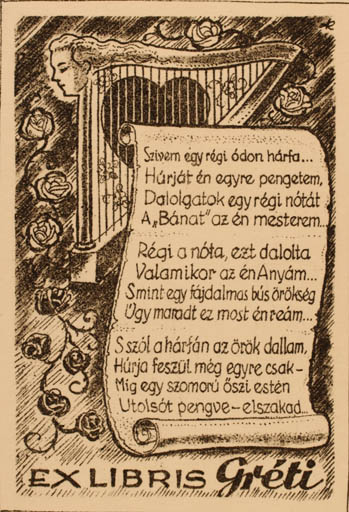 Szívem egy régi ódon hárfa...
Húrját én egyre pengetem,
Dalolgatok egy régi nótát
A „Bánat" az én mesterem...
Régi a nóta, ezt dalolta
Valamikor az én Anyám...
S mint egy fájdalmas bús örökség
Úgy maradt ez most én reám...
S szól a hárfán az örök dallam,
Húrja feszül még egyre csak -
Míg egy szomorú őszi estén
Utolsót pengve - elszakad...
EX LIBRIS Gréti